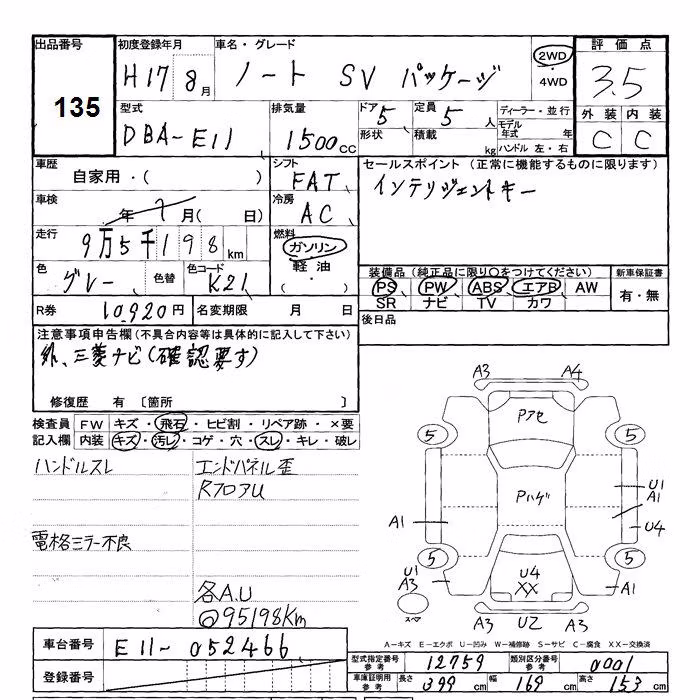 出品番号 初度登録年月 車名・グレード 評価点
135
H17 8月 ノート SV パッケージ 2WD ・ 4WD 3.5
型式 排気量 ドア 5 定員 5人 ディーラー・並行 外装 内装
DBA-E11 1500cc 形状 積載 kg モデル年式 年 C C
ハンドル 左・右
車歴 シフト セールスポイント (正常に機能するものに限ります)
自家用・( ) FAT インテリジェントキー
車検 冷房
年 月( 日) AC
走行 燃料
9万5千198km ガソリン
軽油
・( )
色 色替 色コード 装備品(純正品に限り○をつけてください) 新車保証書
グレー K21 PS PW ABS エアB AW 有・無
SR ナビ TV カワ
R券 10,920円 名変期限 月 日 後日品
注意事項申告欄(不具合内容等は具体的に記入して下さい)
外、三菱ナビ(確認要す)
修復歴 有 〔箇所 〕
検査員 FW キズ・飛石・ヒビ割・リペア跡・×要
記入欄 内装 キズ・汚レ・コゲ・穴・スレ・キレ・破レ
ハンドルスレ エンドパネル歪
RフロアU
電格ミラー不良
各A.U
@95198Km
A3 A4
Pアセ
5 5
Pハゲ
U1
A1
A1 U4
5 5
U1
A3 U4 A1
XX
スペア A3 U2 A3
A-キズ E-エクボ U-凹み W-補修跡 S-サビ C-腐食 XX-交換済
車台番号 E11-052466
登録番号
型式指定番号 参考 12759 類別区分番号 参考 0001
車庫証明用 参考 長さ 399cm 幅 169cm 高さ 153cm